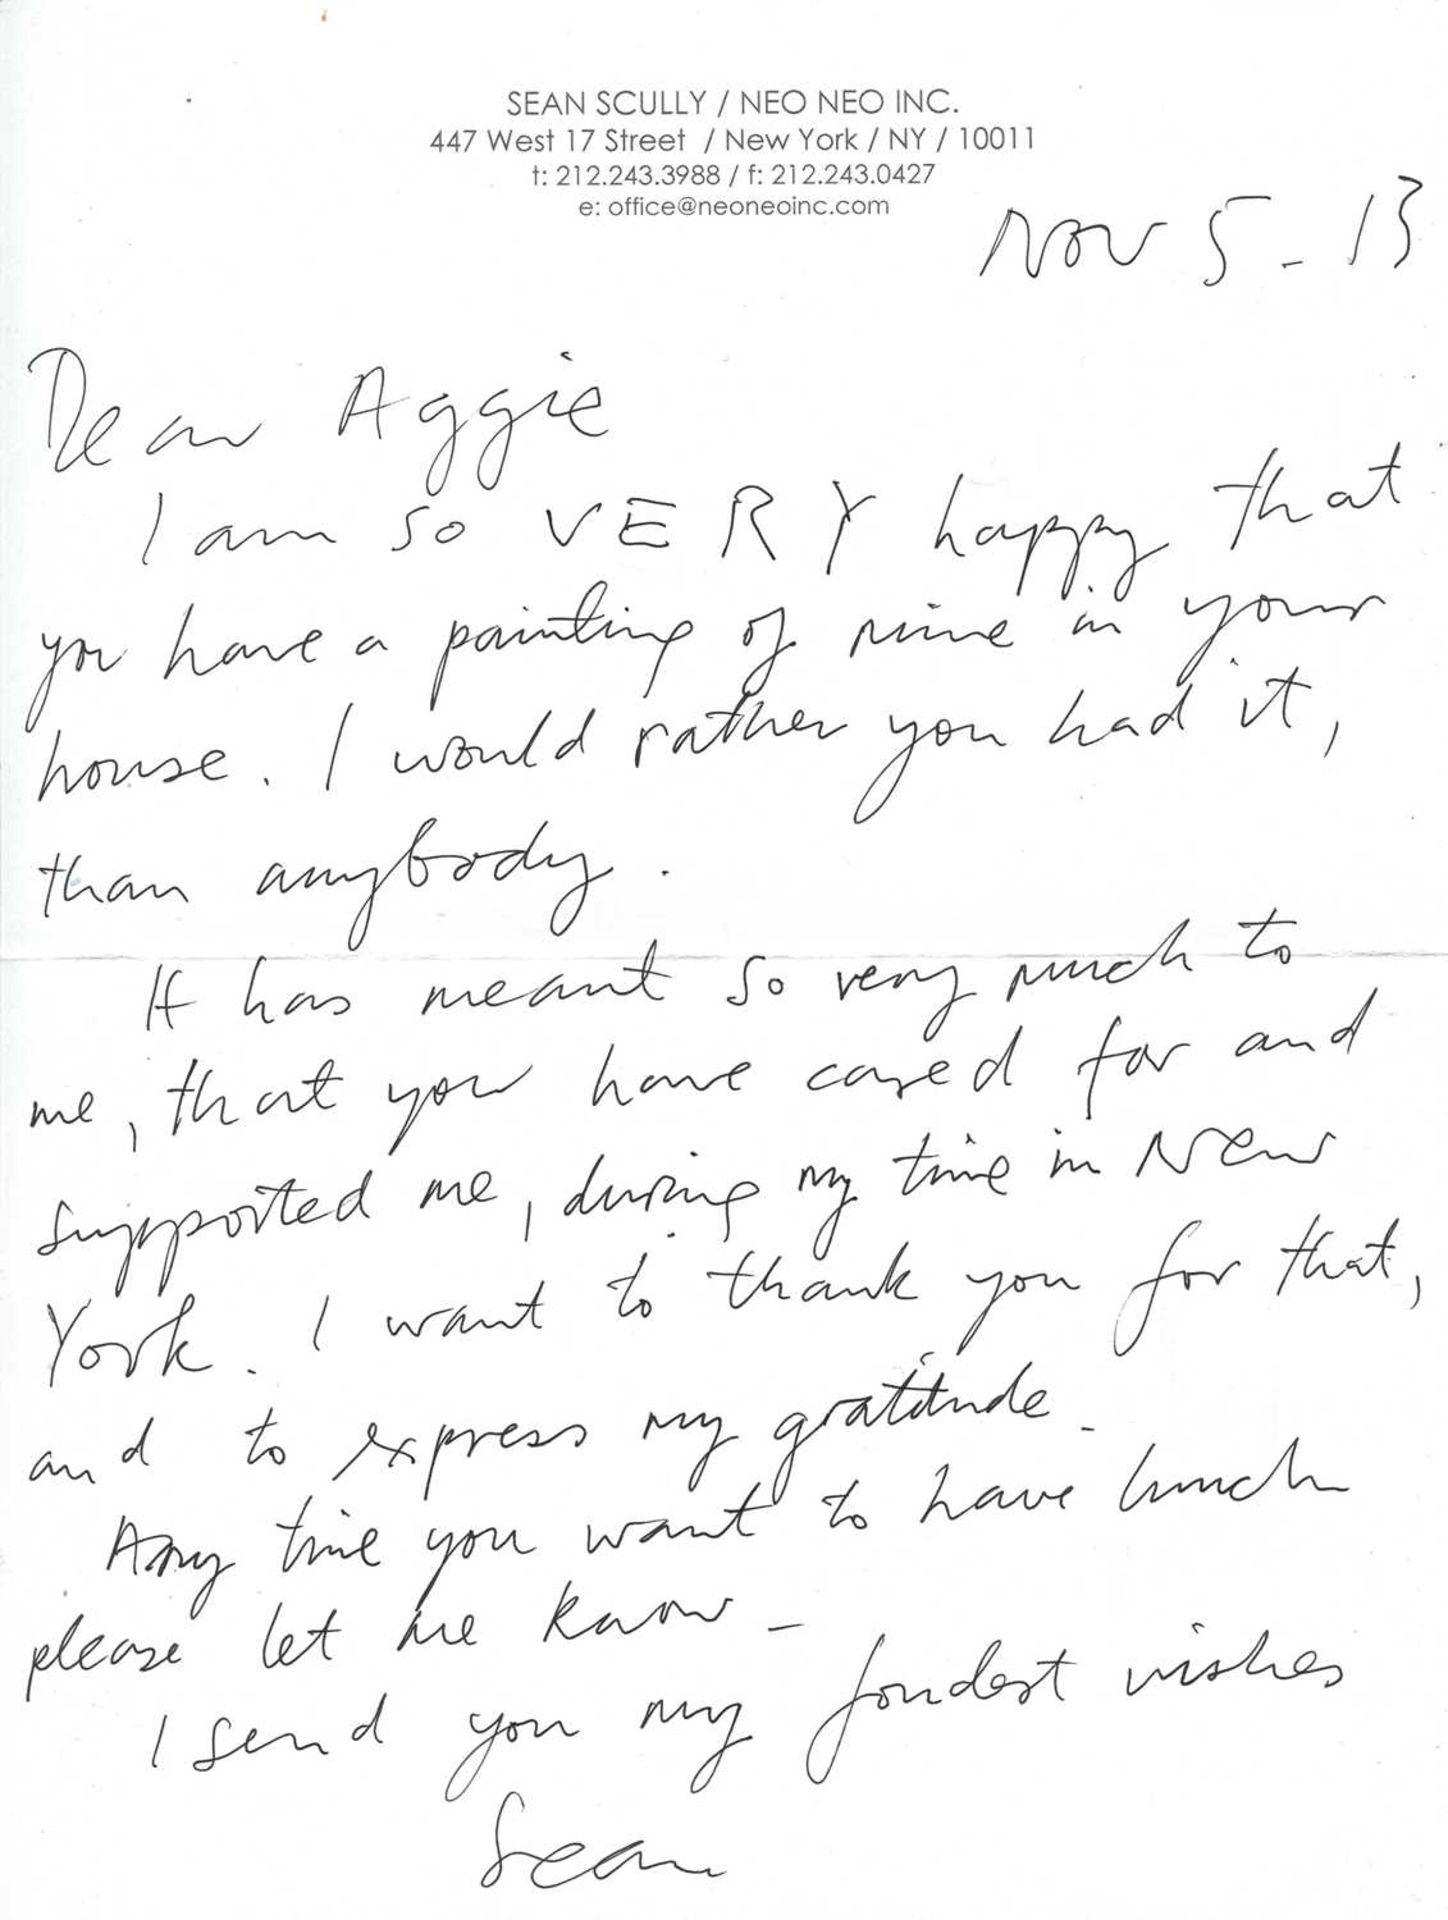 SEAN SCULLY / NEO NEO INC.
447 West 17 Street / New York / NY / 10011
t: 212.243.3988 / f: 212.243.0427
e: office@neoneoinc.com
Nov 5 - 13
Dear Aggie
I am so VERY happy that
you have a painting of mine in your
house. I would rather you had it,
than anybody.
It has meant so very much to
me, that you have cared for and
supported me, during my time in New
York. I want to thank you for that,
and to express my gratitude.
Any time you want to have lunch
please let me know -
I send you my fondest wishes
Sean